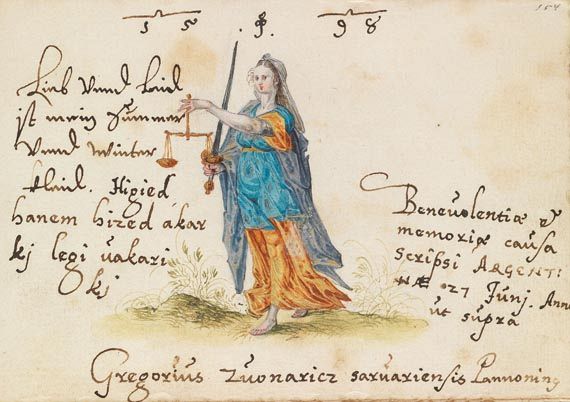 154
15 .S. 98
Lieb Vnnd Laid
ist mein Summer
Vnnd Winter
klaid. Higied,
hanem hized akar
kj legi vakari
kj
Beneuolentiæ et
memoriæ causa
Scripsi ARGENTI
NÆ 27 Junj. Anno
ut supra
Gregorius Zuonaricz saruariensis Pannonius